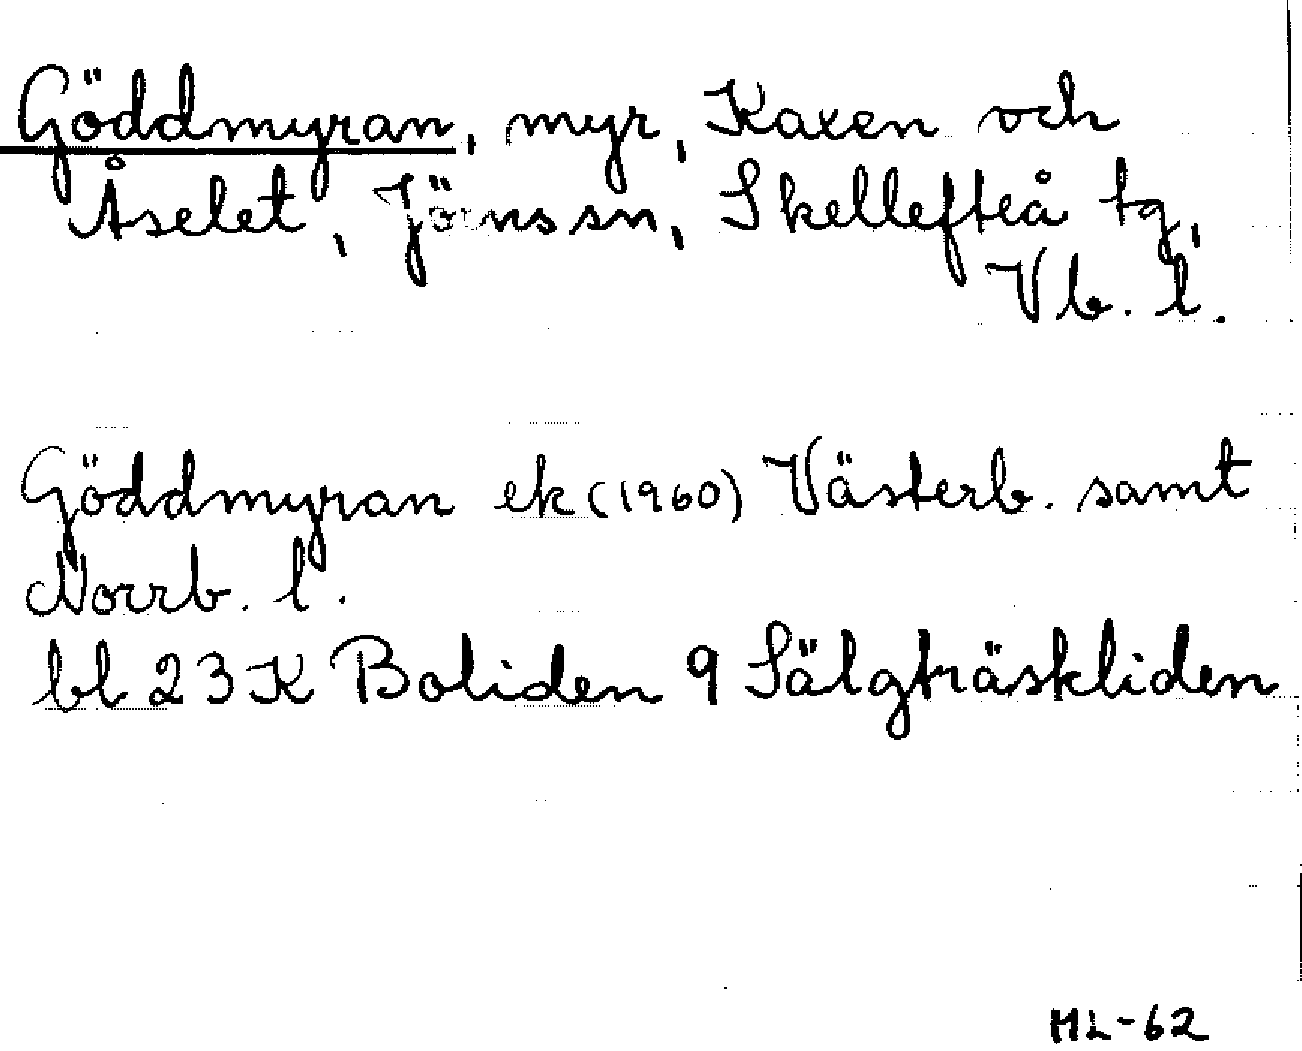 Göddmyran, myr, Kaxen och
Åselet, Jörns sn, Skellefteå tg,
Vb. l.
Göddmyran ek (1960) Västerb. samt
Norrb. l.
bl 23 K Boliden 9 Sälgträskliden
HL-62